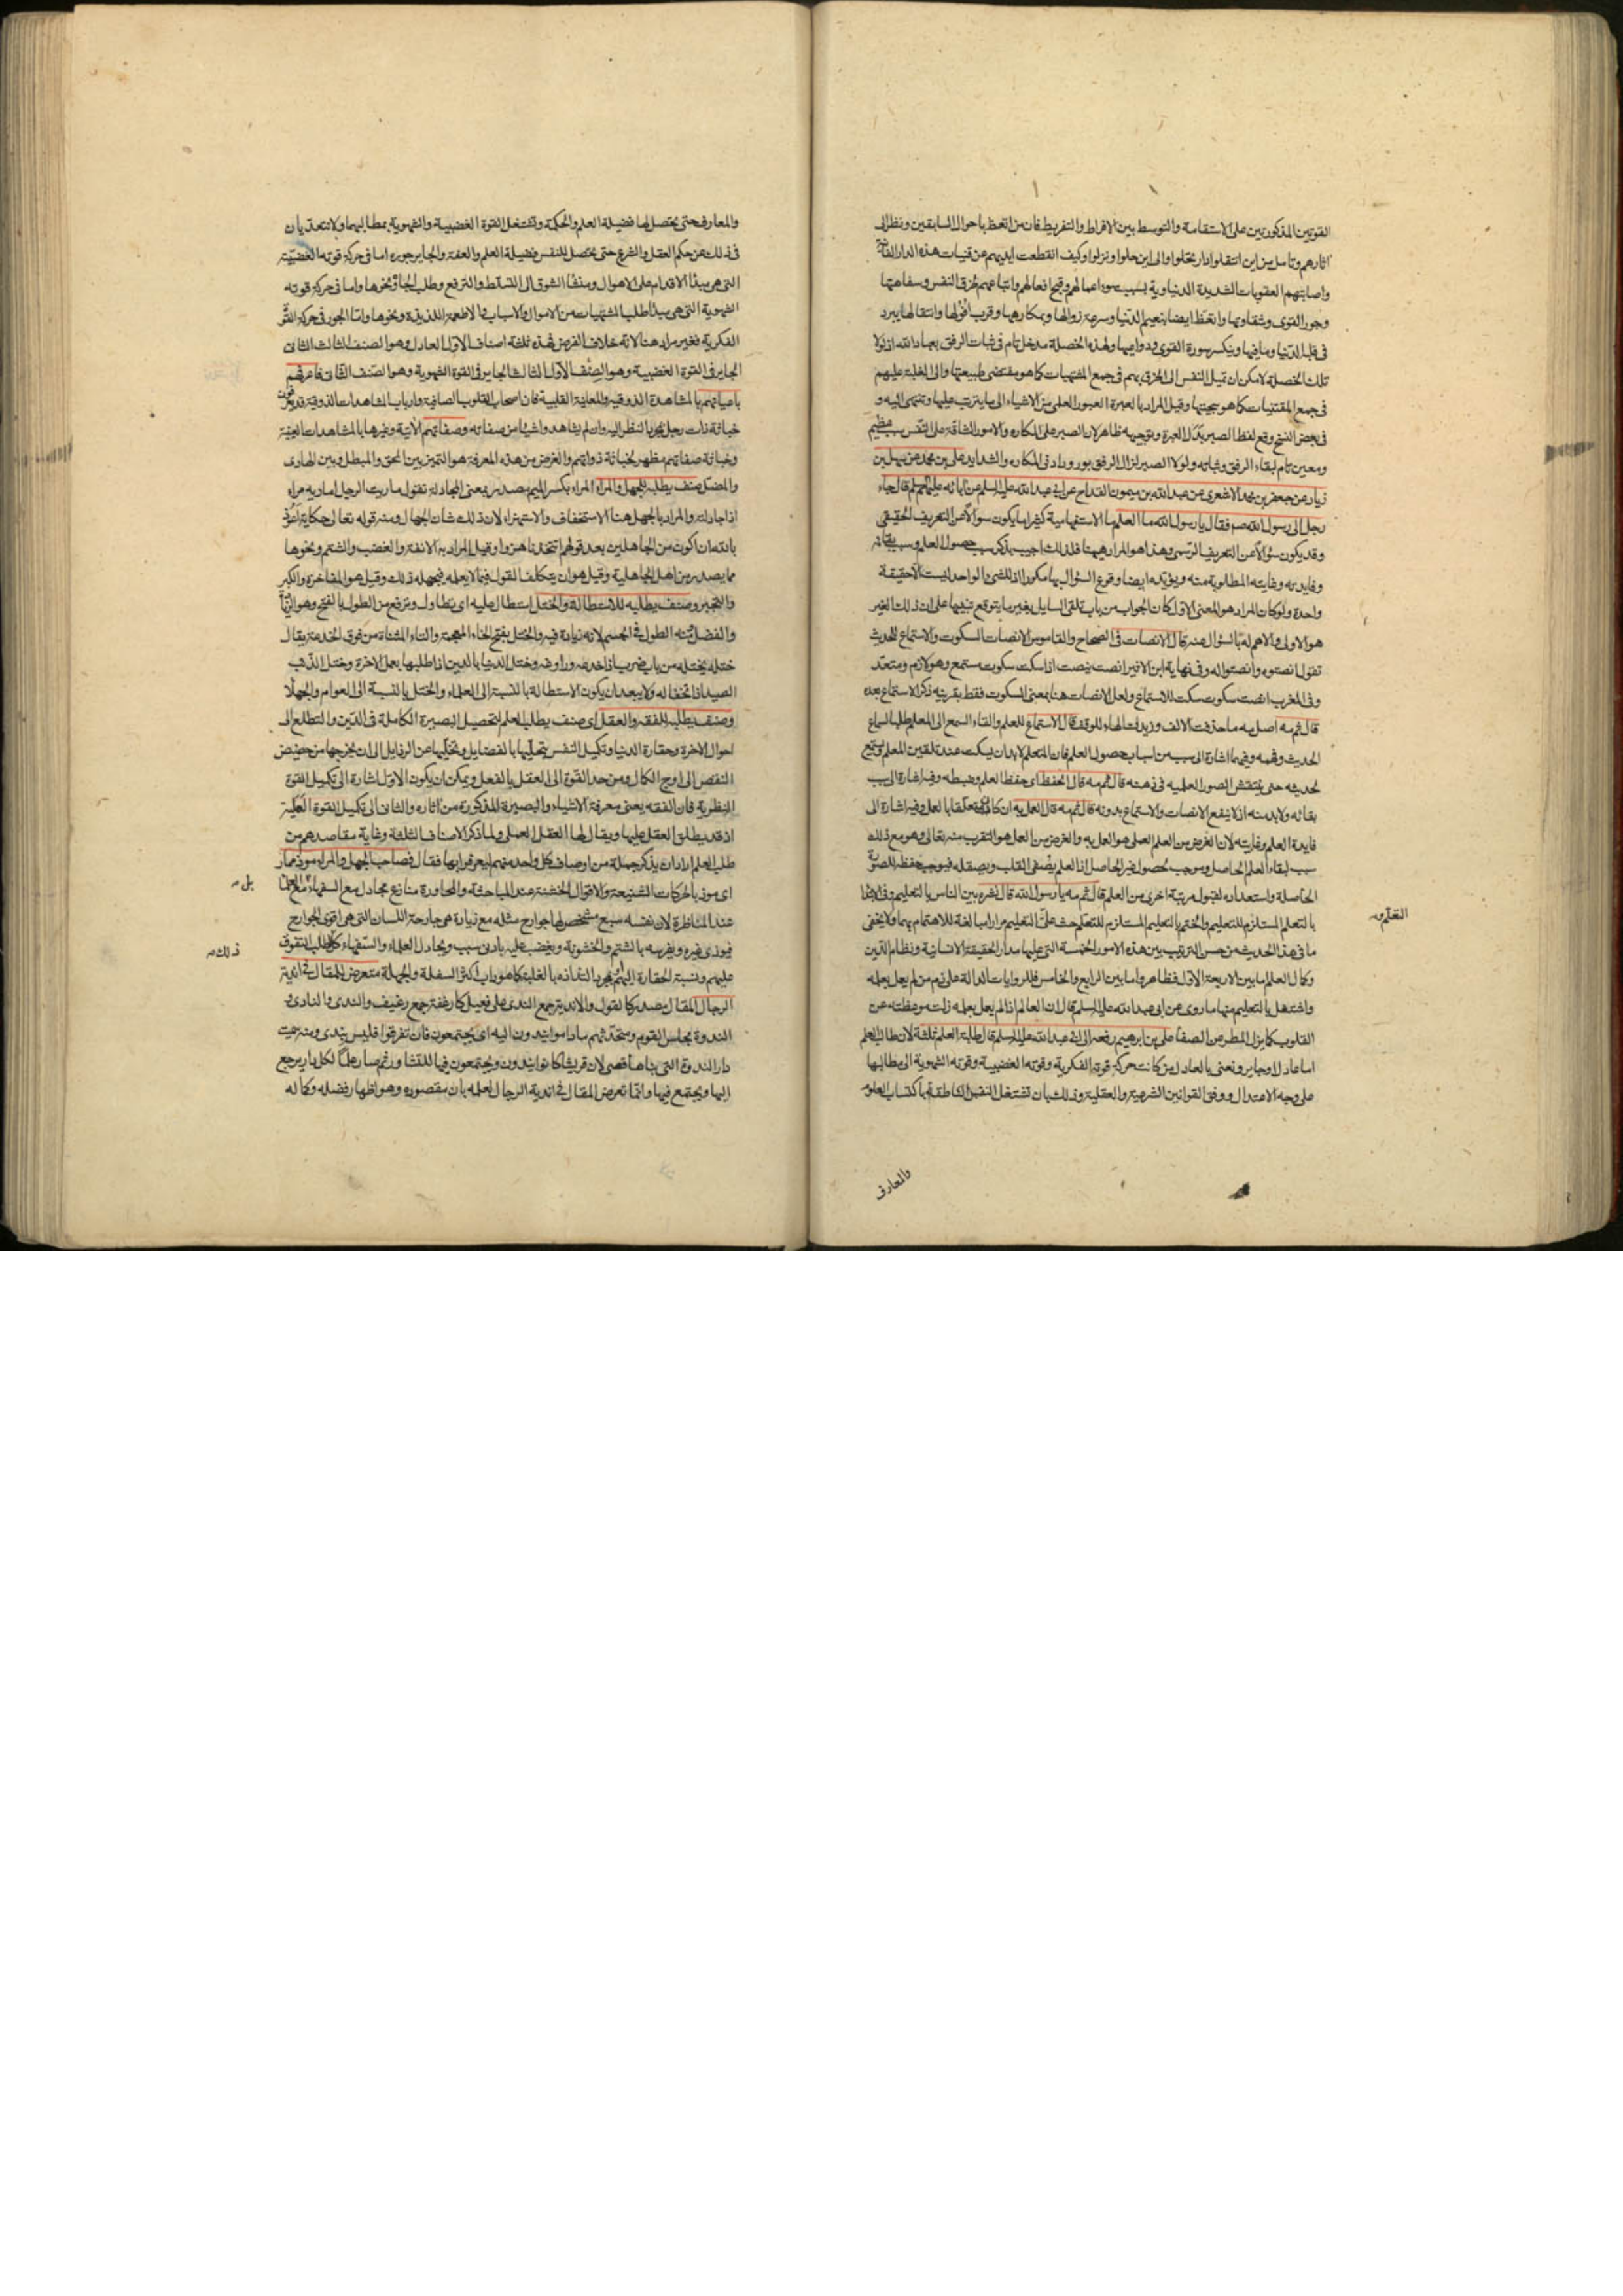 القوتين المذكورتين على الاستقامة والتوسط بين الافراط والتفريط فان من اتعظ باحوال السابقين ونظر الى
اثارهم وتامل من اين انتقلوا وارتحلوا والى اين حلوا ونزلوا وكيف انقطعت ايديهم عن قنيات هذه الدار الفانية
واصابتهم العقوبات الشديدة الدنياوية بسبب سوء اعمالهم وقبح افعالهم واتباعهم خرق النفس وسفاهتها
وجور القوى وشقاوتها واتعظ ايضا بنعيم الدنيا وسرعة زوالها وبمكارهها وقرب افولها وانتقالها يبرد
في قلبه الدنيا وما فيها وينكسر سورة القوى ودواعيها ولهذه الخصلة مدخل تام في ثبات الرفق بعباد الله اذ لولا
تلك الخصلة لامكن ان تميل النفس الى الخرق بهم في جمع المشتهيات كما هو مقتضى طبيعتها والى الغلبة عليهم
في جمع المقتنيات كما هو سجيتها وقيل المراد بالعبرة العبور العلمي من الاشياء الى ما يترتب عليها وتنتهى اليه و
في بعض النسخ وقع لفظ الصبر بدل العبرة وتوجيهه ظاهر لان الصبر على المكاره والامور الشاقة على النفس سبب عظيم
ومعين تام لبقاء الرفق وثباته ولولا الصبر لزال الرفق بورود ادنى المكاره والشدايد على بن محمد عن سهل بن
زياد عن جعفر بن محمد الاشعرى عن عبد الله بن ميمون القداح عن ابى عبد الله عليه السلم عن آبائه عليهم السلم قال جاء
رجل الى رسول الله صم فقال يا رسول الله ما العلم ما الاستفهامية كثيرا ما يكون سوالا عن التعريف الحقيقى
وقد يكون سؤالا عن التعريف الرسمى وهذا هو المراد هيهنا فلذلك اجيب بذكر سبب حصول العلم وسبب بقائه
وفايدته وغايته المطلوبة منه ويؤيده ايضا وقوع السؤال بها مكررا اذ للشئ الواحد ليست الا حقيقة
واحدة ولو كان المراد هو المعنى الاول كان الجواب من باب تلقى السايل بغير ما يتوقع تنبيها على ان ذلك الغير
هو الاولى والاهم له بالسؤال عنه قال الانصات في الصحاح والقاموس الانصات السكوت والاستماع للحديث
تقول انصتوه وانصتوا له وفي نهاية ابن الاثير انصت ينصت اذا سكت سكوت مستمع وهو لازم ومتعد
وفي المغرب انصت سكوت سكت للاستماع ولعل الانصات هنا بمعنى السكوت فقط بقرينة ذكر الاستماع بعده
قال ثم مه اصل مه ما حذفت الالف وزيدت الهاء للوقف قال الاستماع للعلم والقاء السمع الى المعلم طلبا لسماع
الحديث وفهمه وفيهما اشارة الى سبب من اسباب حصول العلم فان المتعلم لابد ان يسكت عند تلقين المعلم ويستمع
لحديثه حتى ينتقش الصور العلميه في ذهنه قال ثم مه قال الحفظ اى حفظ العلم وضبطه وفيه اشارة الى سبب
بقائه ولابد منه اذ لا ينفع الانصات والاستماع بدونه قال ثم مه قال العمل به ان كان متعلقا بالعمل وفيه اشارة الى
فايدة العلم وغايته لان الغرض من العلم العملى هو العمل به والغرض من العمل هو التقرب منه تعالى وهو مع ذلك
سبب لبقاء العلم الحاصل وموجب لحصول غير الحاصل اذ العلم يصفى القلب ويصقله فيوجب حفظه للصور
الحاصلة واستعداده لقبول مرتبة اخرى من العلم قال ثم مه يا رسول الله قال نشره بين الناس بالتعليم وفى الابتدا
بالتعلم المستلزم للتعليم والختم بالتعليم المستلزم للتعلم حث على التعليم مرارا مبالغة للاهتمام بهما ولا يخفى
ما في هذا الحديث من حسن الترتيب بين هذه الامور الخمسة التى عليها مدار الحقيقة الانسانية ونظام الدين
وكمال العلم اما بين الاربعة الاول فظاهر واما بين الرابع والخامس فللروايات الدالة على ذم من لم يعمل بعلمه
واشتغل بالتعليم منها ما روى عن ابى عبد الله عليه السلم قال ان العالم اذا لم يعمل بعلمه زلت موعظته عن
القلوب كما يزل المطر عن الصفا على بن ابرهيم رفعه الى ابى عبد الله عليه السلم قال طلبة العلم ثلثة لان طالب العلم
اما عادل او جاير ونعنى بالعادل من كانت حركة قوته الفكرية وقوته الغضبية وقوته الشهوية الى مطالبها
على وجه الاعتدال ووفق القوانين الشرعية والعقلية وذلك بان تشتغل النفس الناطقة باكتساب العلوم
والمعارف
التعلم
والمعارف حتى يحصل لها فضيلة العلم والحكمة وتشتغل القوة الغضبية والشهوية بمطالبهما ولا تتعديان
في ذلك عن حكم العقل والشرع حتى يحصل للنفس فضيلة العلم والعفة والجاير جوره اما في حركة قوته الغضبية
التى هى مبدأ الاقدام على الاهوال ومنشأ الشوق الى التسلط والترفع وطلب الجاه ونحوها واما في حركة قوته
الشهوية التى هى مبدأ طلب المشتهيات من الاموال والاسباب والاطعمة اللذيذة ونحوها واما الجور في حركة القوة
الفكرية فغير مراد هنا لانه خلاف الفرض فهذه ثلثة اصناف الاول العادل وهو الصنف الثالث الثانى
الجاير في القوة الغضبية وهو الصنف الاول الثالث الجاير في القوة الشهوية وهو الصنف الثانى فاعرفهم
باعيانهم بالمشاهدة الذوقية والمعاينة القلبية فان اصحاب القلوب الصافية وارباب المشاهدات الذوقية قد يعرفون
خباثة ذات رجل بمجرد النظر اليه وان لم يشاهدوا شيئا من صفاته وصفاتهم الآتية وغيرها بالمشاهدات العينية
وخباثة صفاتهم مظهر لخباثة ذواتهم والغرض من هذه المعرفة هو التميز بين المحق والمبطل وبين الهادى
والمضل صنف يطلبه للجهل والمراء المراء بكسر الميم مصدر بمعنى المجادلة تقول ماريت الرجل اماريه مراء
اذا جادلته والمراد بالجهل هنا الاستخفاف والاستهزاء لان ذلك شان الجهال ومنه قوله تعالى حكاية اعوذ
بالله ان اكون من الجاهلين بعد قولهم اتتخذنا هزوا وقيل المراد به الانفة والغضب والشتم ونحوها
مما يصدر من اهل الجاهلية وقيل هو ان يتكلف القول فيما لا يعلمه فيجهله ذلك وقيل هو المفاخرة والكبر
والتجبر وصنف يطلبه للاستطالة والختل استطال عليه اى تطاول وترفع من الطول بالفتح وهو الزيادة
والفضل منه الطول في الجسم لانه زيادة فيه والختل بفتح الخاء المعجمة والتاء المثناة من فوق الخدعة يقال
ختله يختله من باب ضرب اذا خدعه وراوغه وختل الدنيا بالدين اذا طلبها بعمل الاخرة وختل الذئب
الصيد اذا تخفى له ولا يبعد ان يكون الاستطالة بالنسبة الى العلماء والختل بالنسبة الى العوام والجهلا
وصنف يطلبه للفقه والعقل اى صنف يطلب العلم لتحصيل البصيرة الكاملة في الدين والتطلع الى
احوال الاخرة وحقارة الدنيا وتكميل النفس بتحليتها بالفضايل وتخليتها عن الرذايل الى ان يخرجها من حضيض
النقص الى اوج الكمال ومن حد القوة الى العقل بالفعل ويمكن ان يكون الاول اشارة الى تكميل القوة
النظرية فان الفقه يعنى معرفة الاشياء والبصيرة المذكورة من اثاره والثانى الى تكميل القوة العملية
اذ قد يطلق العقل عليها ويقال لها العقل العملى ولما ذكر الاصناف الثلثة وغاية مقاصدهم من
طلب العلم اراد ان يذكر جملة من اوصاف كل واحد منهم ليعرفوا بها فقال فصاحب الجهل والمراء موذ ممار
اى موذ بالحركات الشنيعة والاقوال الخشنة عند المباحثة والمحاورة منازع مجادل مع السفهاء مع العلما
عند المناظرة لان نفسه سبع مشخص لها جوارح مثله مع زيادة هى جارحة اللسان التى هى اقوى الجوارح
فيوذى غيره ويفرسه بالشتم والخشونة ويغضب عليه بادنى سبب ويجادل العلماء والسفهاء كل لطلب التفوق
عليهم ونسبة الحقارة اليهم او لمجرد التذاذه بالغلبة كما هو داب اكثر السفلة والجهلة متعرض للمقال في اندية
الرجال المقال مصدر كالقول والاندية جمع الندى على فعيل كارغفة جمع رغيف والندى والنادى و
الندوة مجلس القوم ومتحدثهم ماداموا يندون اليه اى يجتمعون فان تفرقوا فليس بندى ومنه سميت
دار الندوة التى بناها قصى لان قريشا كانوا يندون ويجتمعون فيها للتشاور ثم صار علما لكل دار يرجع
اليها ويجتمع فيها وانما تعرض للمقال في اندية الرجال لعلمه بان مقصوره وهو اظهار فضله وكماله
بل
ذلك